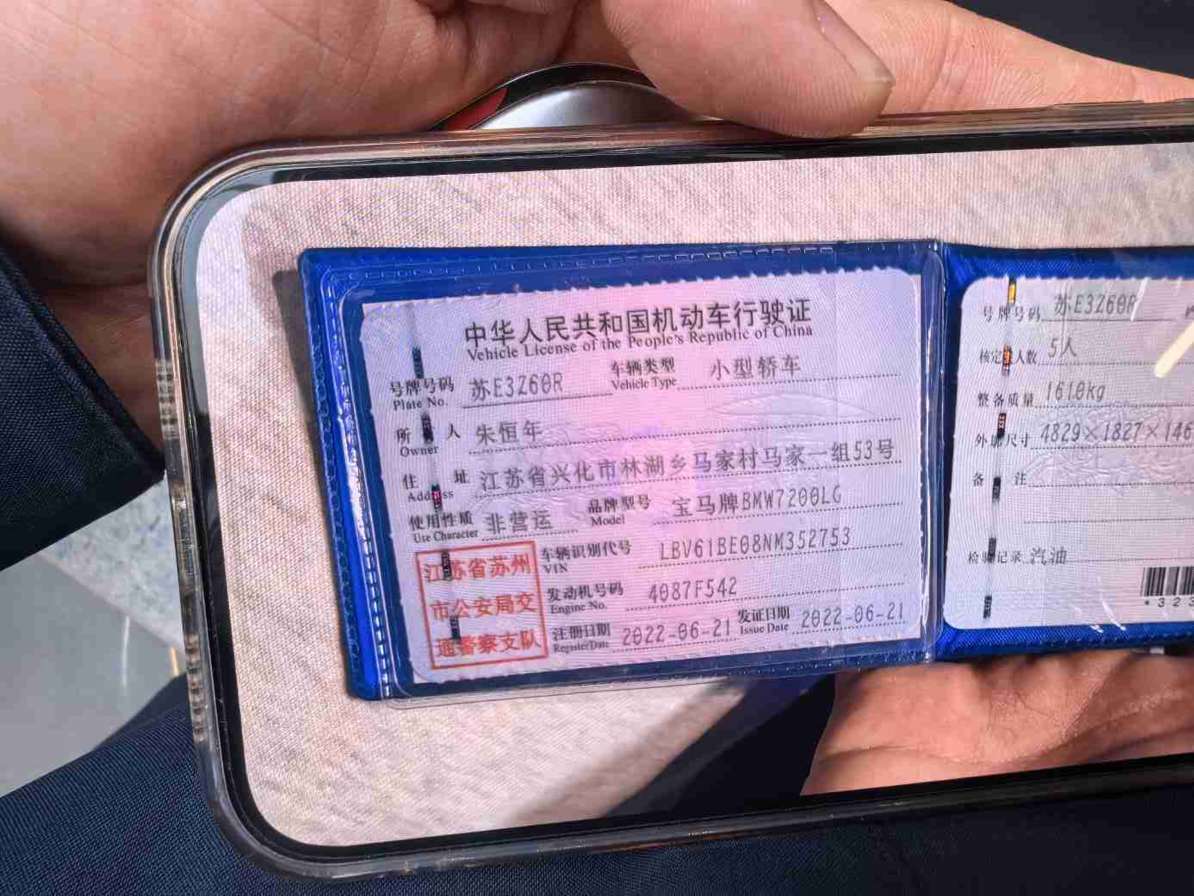 中华人民共和国机动车行驶证
Vehicle License of the People's Republic of China
号牌号码 苏E3Z60R 车辆类型 小型轿车
Plate No. Vehicle Type
所 人 朱恒年
Owner
住 址 江苏省兴化市林湖乡马家村马家一组53号
Address
使用性质 非营运 品牌型号 宝马牌BMW7200LG
Use Character Model
江苏省苏州
市公安局交
通警察支队
车辆识别代号 LBV61BE08NM352753
VIN
发动机号码 4087F542
Engine No.
注册日期 2022-06-21 发证日期 2022-06-21
Register Date Issue Date
号牌号码 苏E3Z60R
核定 人数 5人
整备质量 1610kg
外 尺寸 4829×1827×146
备 注
检验记录 汽油
*323